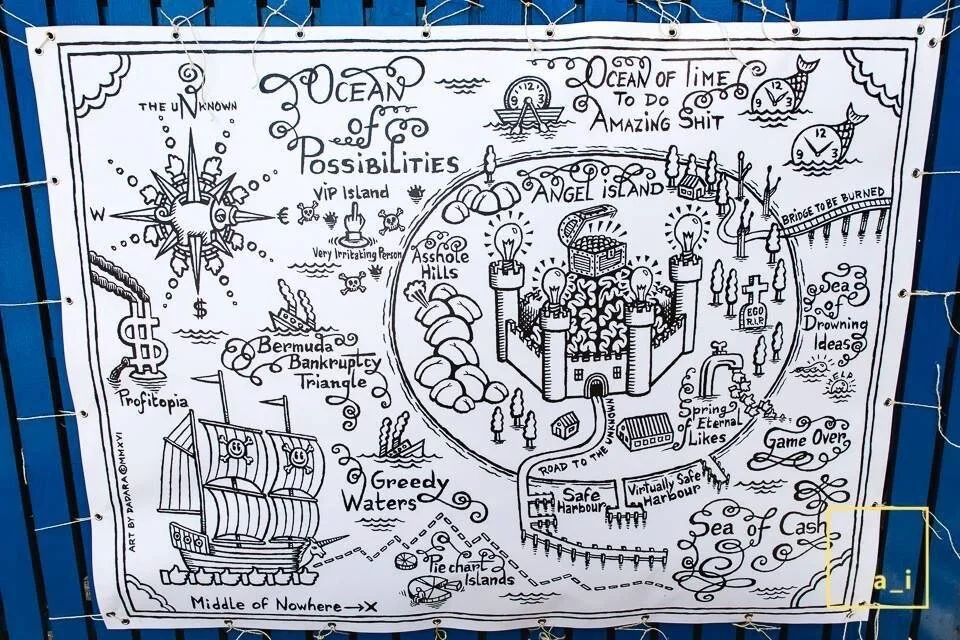 THE UNKNOWN
W
€
$
OCEAN
of
POSSIBILITIES
OCEAN OF TIME
TO DO
AMAZING SHIT
12
9 3
12
9 3
12
9 3
ViP Island
Very Irritating Person
ANGEL ISLAND
BRIDGE TO BE BURNED
Asshole
Hills
EGO
R.I.P
Sea
of
Drowning
Ideas
HELP
Bermuda
Bankruptcy
Triangle
$
Profitopia
Spring
of Eternal
Likes
Game Over
ROAD TO THE UNKNOWN
Greedy
Waters
Safe
Harbour
Virtually Safe
Harbour
Sea of Cash
Pie chart
Islands
ART BY DADARA © MMXVI
Middle of Nowhere → X
a_i